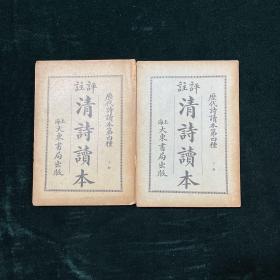 歷代詩讀本第四種
評註
清詩讀本
上海大東書局出版
歷代詩讀本第四種
評註
清詩讀本
上海大東書局出版